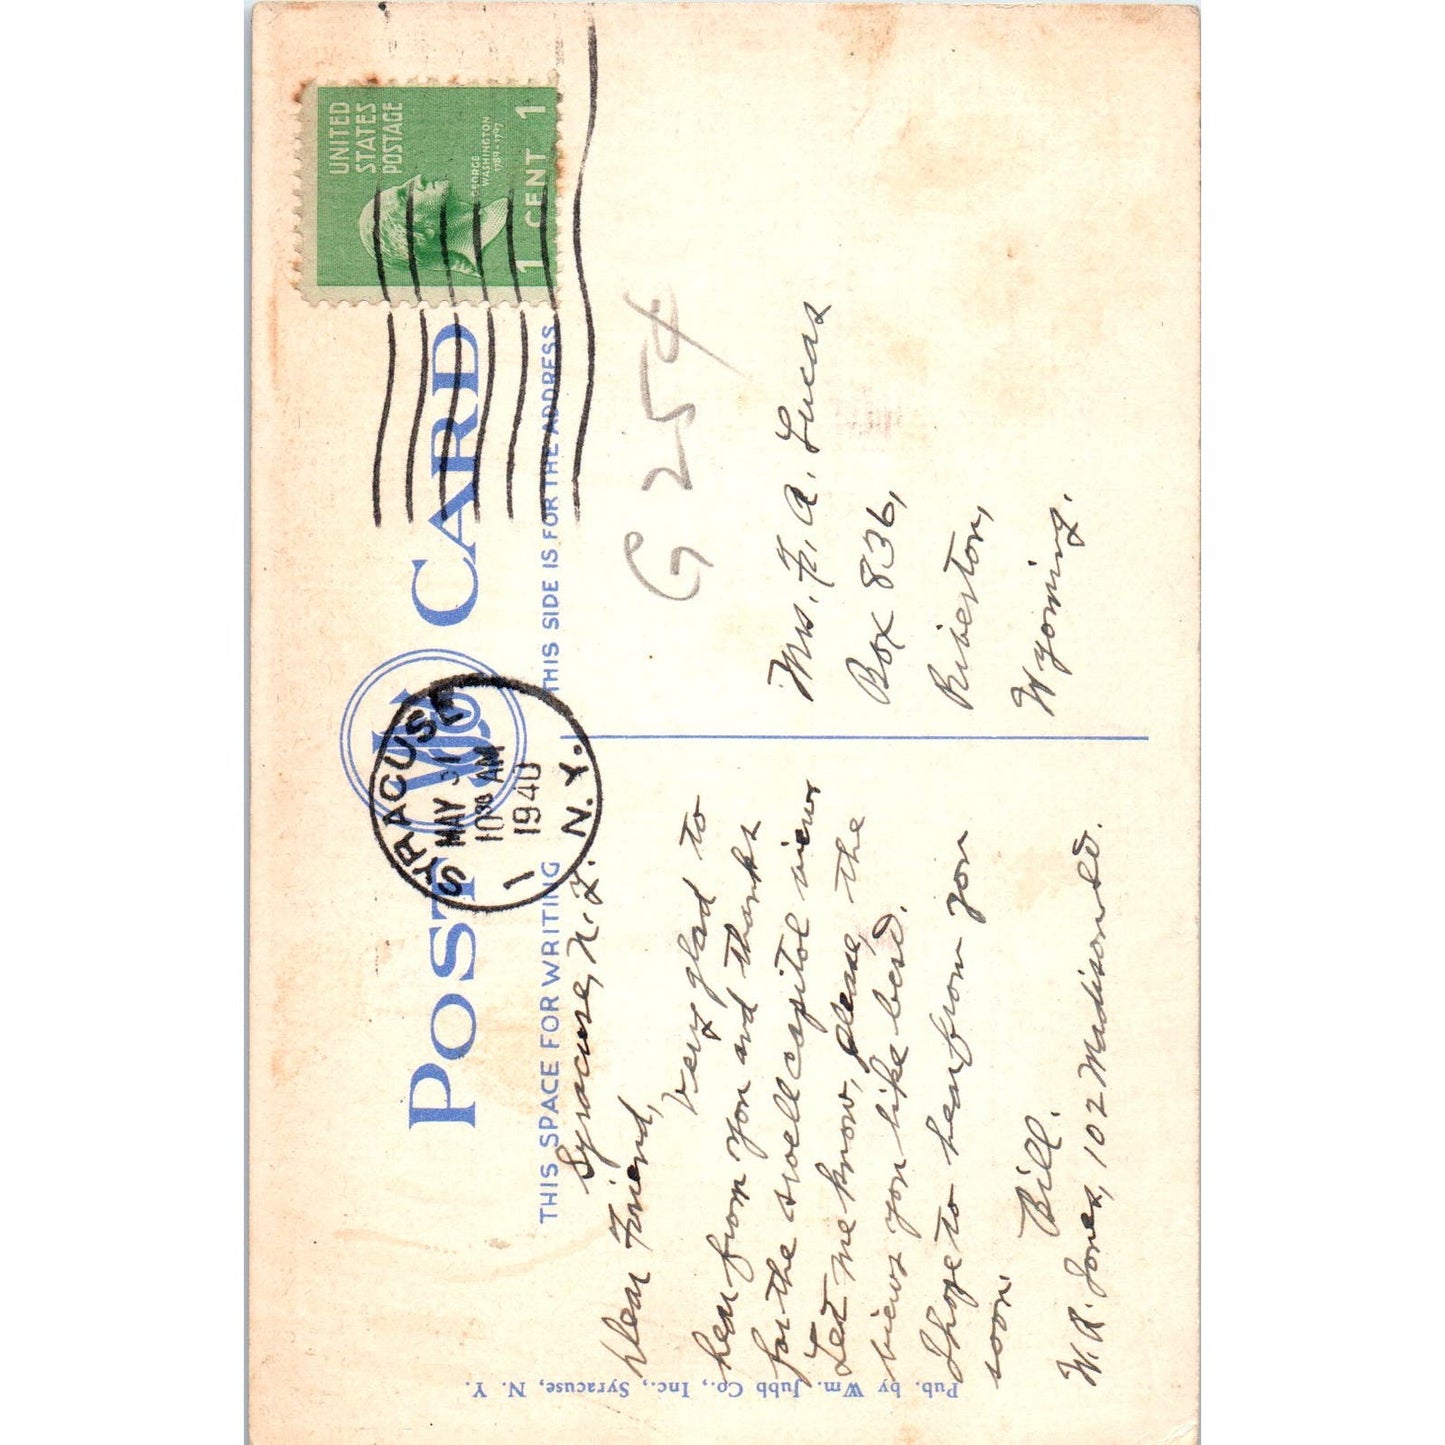 POST CARD
THIS SPACE FOR WRITING
THIS SIDE IS FOR THE ADDRESS
UNITED
STATES
POSTAGE
GEORGE
WASHINGTON
1789-1797
1 CENT 1
SYRACUSE
MAY 31
10 30 AM
1940
1
N.Y.
G 25¢
Syracuse, N.Y.
Dear Friend,
Very glad to
hear from you and thanks
for the swell capitol views
Let me know, please, the
views you like best.
I hope to hear from you
soon.
Bill.
W. R. Jones, 102 Madison St.
Mrs. F. A. Lucas
Box 836,
Riverton,
Wyoming.
Pub. by Wm. Jubb Co., Inc., Syracuse, N. Y.